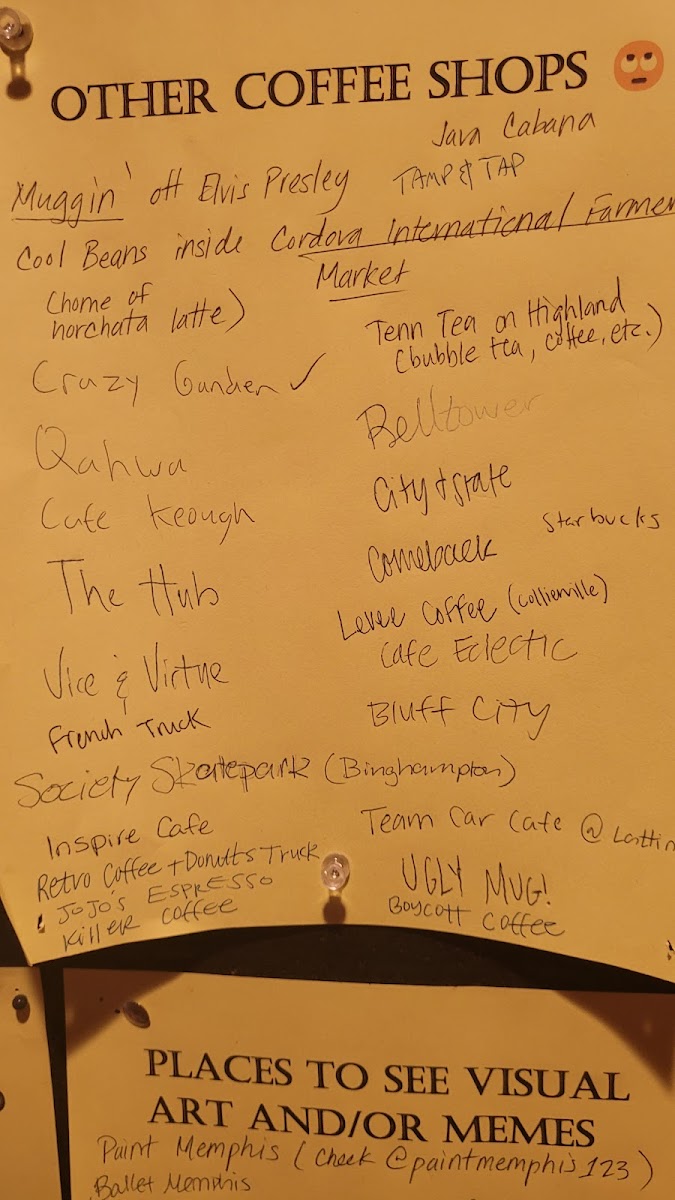 OTHER COFFEE SHOPS 🙄
Java Cabana
Muggin' off Elvis Presley
TAMP & TAP
Cool Beans inside Cordova International Farmer
Market
(home of
horchata latte)
Tenn Tea on Highland
(bubble tea, coffee, etc.)
Crazy Gander ✓
Belltower
Qahwa
City & State
Cafe Keough
Starbucks
Comeback
The Hub
Levee Coffee (Collierville)
Cafe Eclectic
Vice & Virtue
French Truck
Bluff City
Society Skatepark (Binghampton)
Inspire Cafe
Team Car Cafe @
Retro Coffee + Donuts Truck
UGLY MUG!
JoJo's ESPRESSO
Boycott Coffee
Killer Coffee
PLACES TO SEE VISUAL
ART AND/OR MEMES
Paint Memphis (check @paintmemphis123)
Ballet Memphis